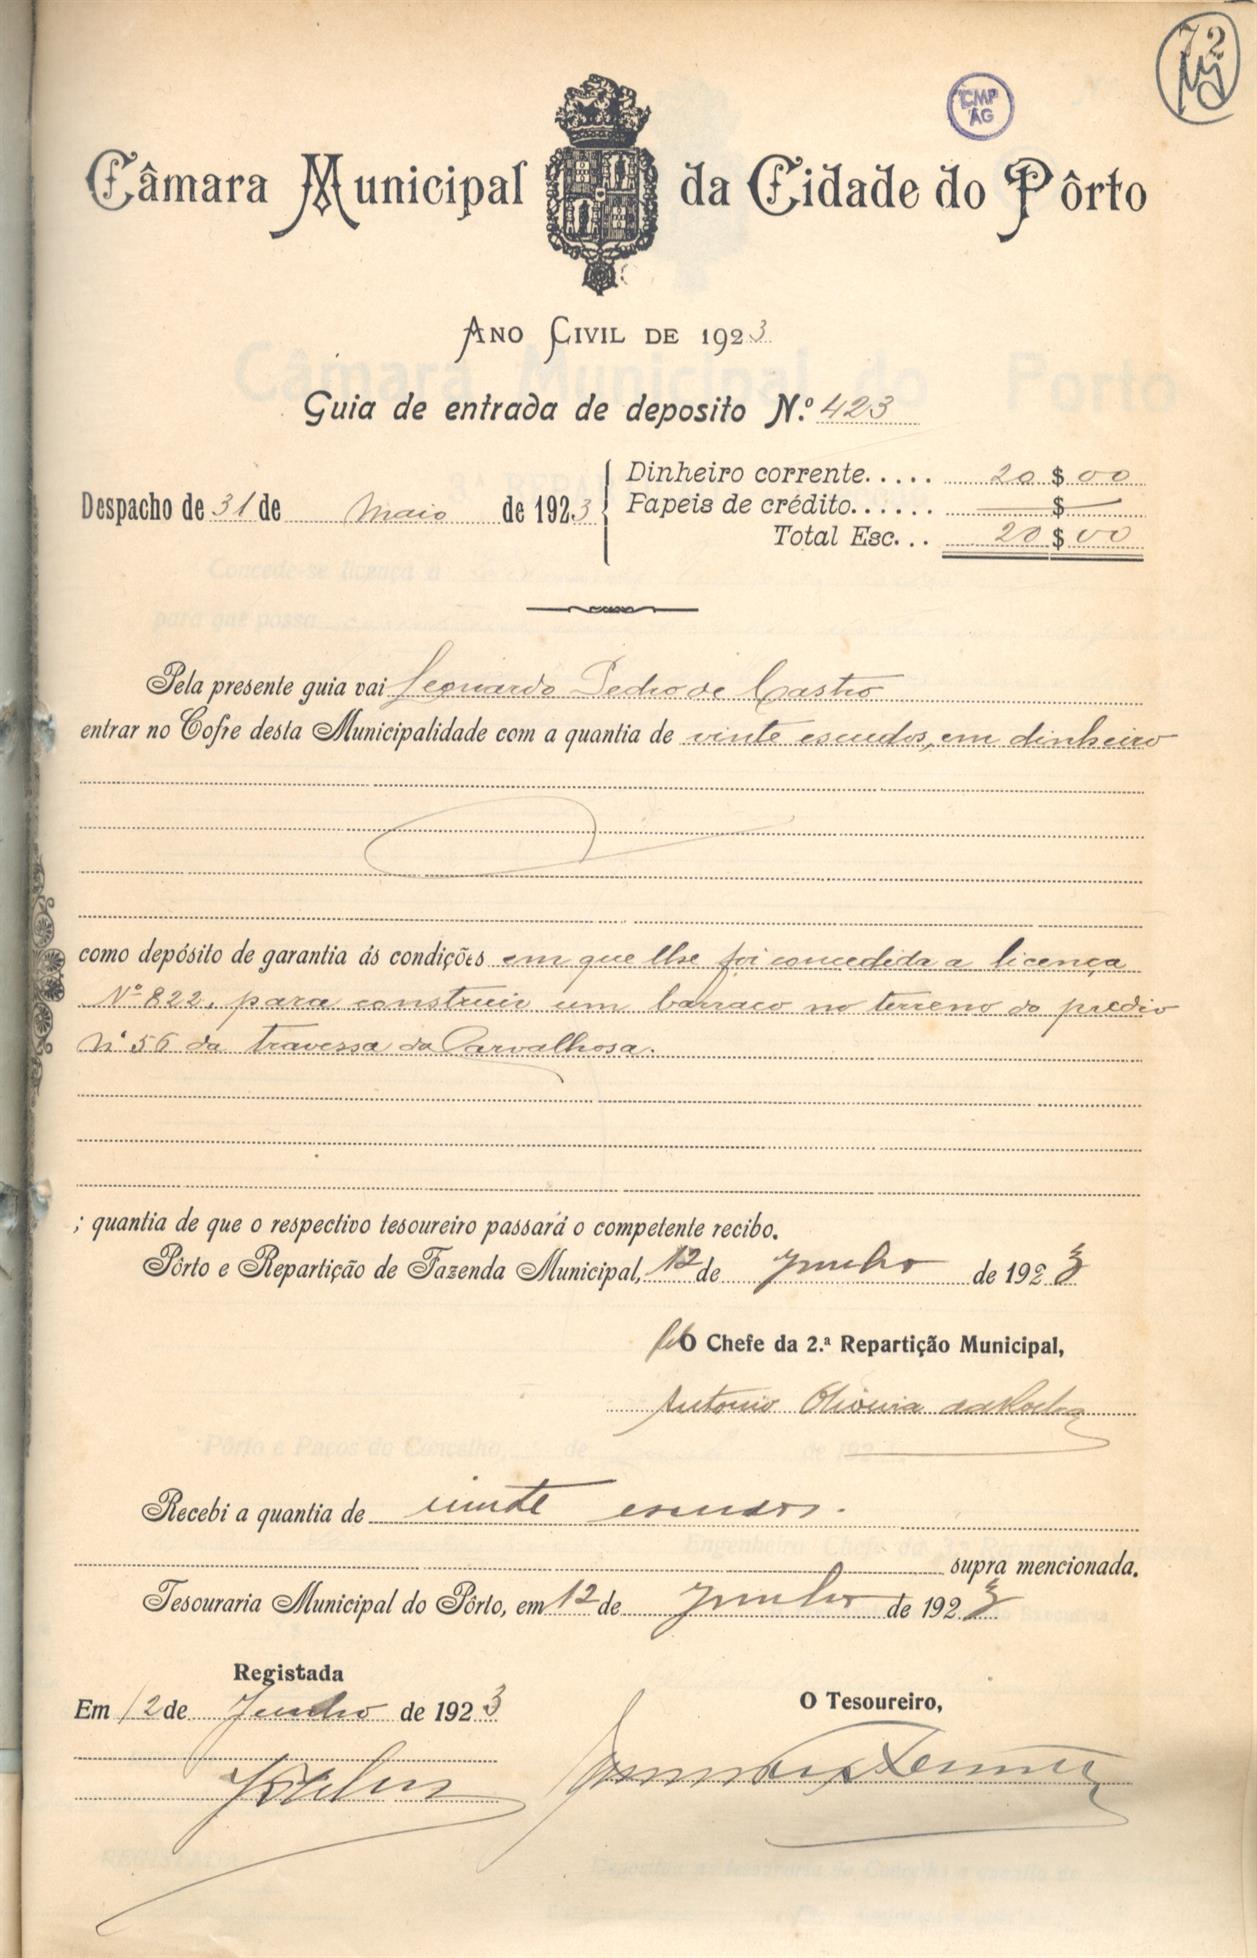 72
CMP
AG
Câmara Municipal da Cidade do Pôrto
Ano Civil de 1923
Guia de entrada de deposito N.º 423
Despacho de 31 de Maio de 1923
Dinheiro corrente..... 20 $ 00
Papeis de crédito...... — $ —
Total Esc... 20 $ 00
Pela presente guia vai Leonardo Pedro de Castro
entrar no Cofre desta Municipalidade com a quantia de vinte escudos, em dinheiro
como depósito de garantia ás condições em que lhe foi concedida a licença
Nº 822, para construir um barraco no terreno do predio
Nº 56 da travessa da Carvalhosa.
; quantia de que o respectivo tesoureiro passará o competente recibo.
Pôrto e Repartição de Fazenda Municipal, 12 de Junho de 1923
O Chefe da 2.ª Repartição Municipal,
Antonio Oliveira da Rocha
Recebi a quantia de vinte escudos.
supra mencionada.
Tesouraria Municipal do Pôrto, em 12 de Junho de 1923
Registada
Em 12 de Junho de 1923
O Tesoureiro,